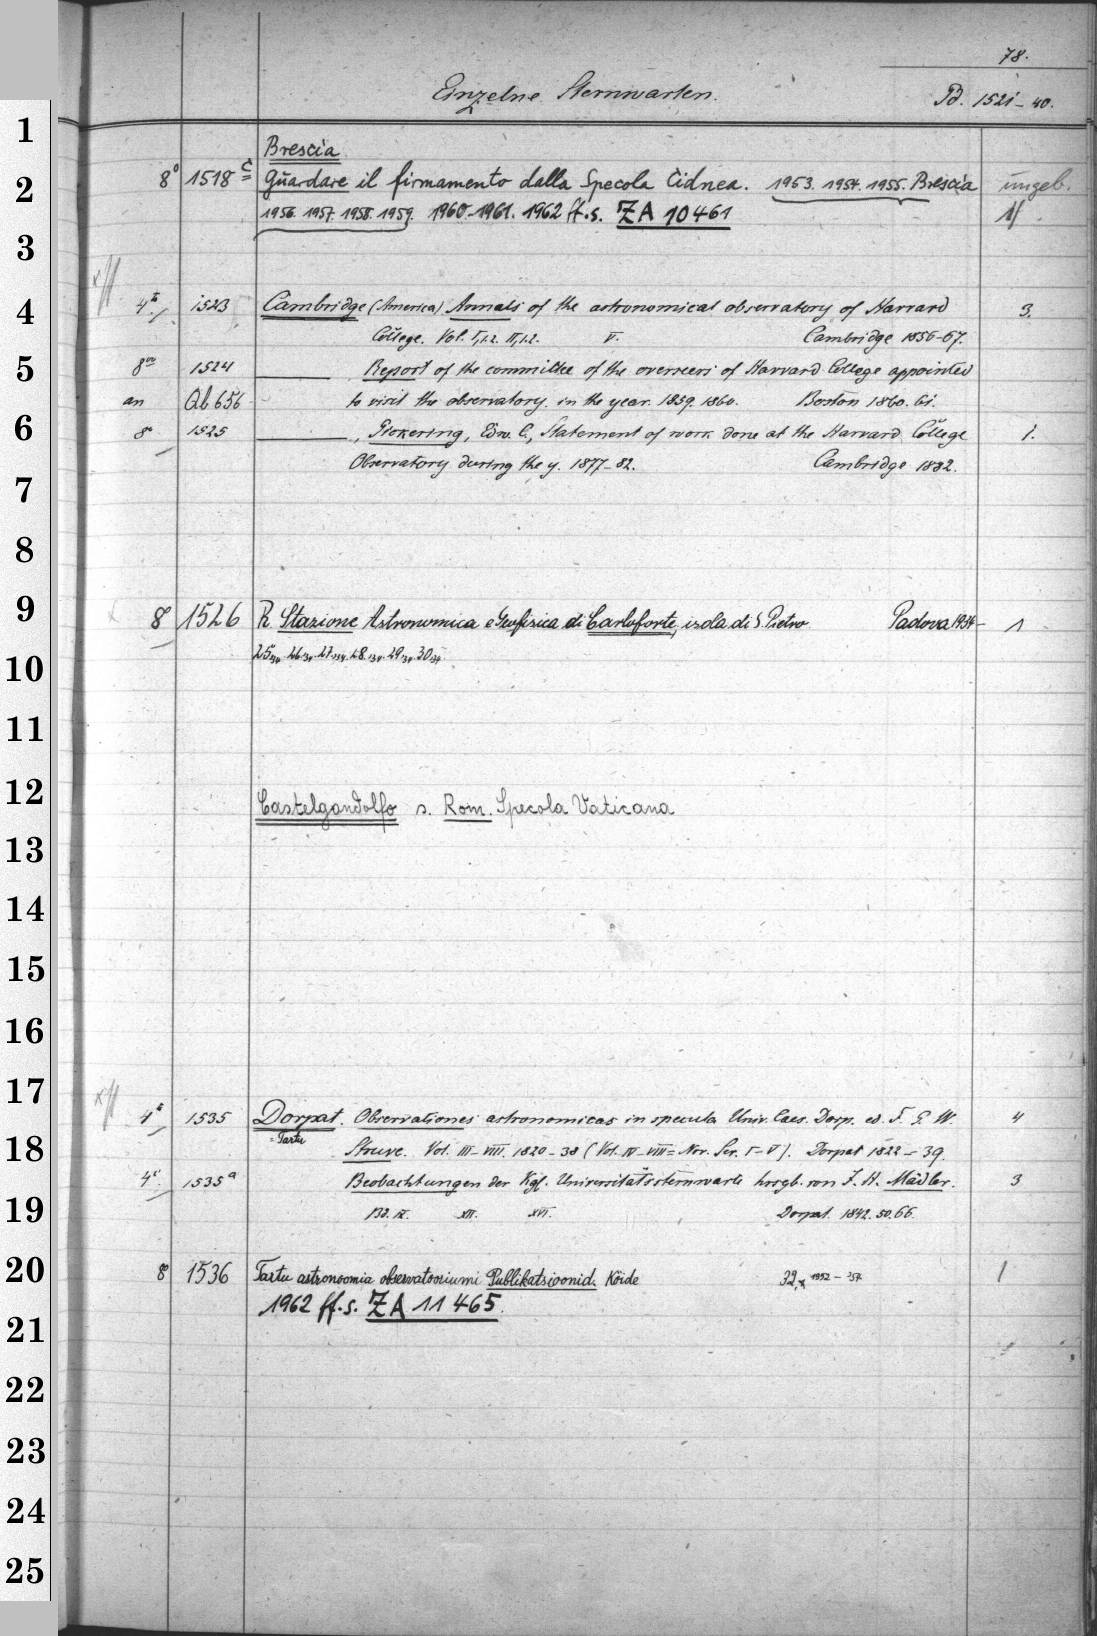 78.
Einzelne Sternwarten.
Pd. 1521-40.
Brescia
8° 1518 c Guardare il firmamento dalla Specola Cidnea. 1953. 1954. 1955. Brescia ungeb.
1956. 1957. 1958. 1959. 1960-1961. 1962 ff. s. ZA 10461
4° 1523 Cambridge (America) Annals of the astronomical observatory of Harvard 3.
College. Vol. I,1.2. II,1.2. V. Cambridge 1856-67.
8vo 1524 Report of the committee of the overseers of Harvard College appointed
an Qb 656 to visit the observatory in the year. 1859. 1860. Boston 1860. 61.
8° 1525 , Pickering, Edw. C., Statement of work done at the Harvard College 1.
Observatory during the y. 1877-82. Cambridge 1882.
8° 1526 R. Stazione Astronomica e Geofisica di Carloforte, isola di S. Pietro Padova 1934- 1
25,34. 26,34. 27,34. 28,34. 29,34. 30,34
Castelgandolfo s. Rom. Specola Vaticana
4° 1535 Dorpat. Observationes astronomicas in specula Univ. Caes. Dorp. ed. F. G. W. 4
=Tartu
Struve. Vol. III-VIII. 1820-38 (Vol. IV-VIII = Nov. Ser. I-V). Dorpat 1822-39.
4° 1535a Beobachtungen der Kgl. Universitätssternwarte hrsgb. von J. H. Mädler. 3
Bd. IX. XII. XVI. Dorpat. 1842. 50. 66.
8° 1536 Tartu astronoomia observatooriumi Publikatsioonid. Köide 32, 1952-57 1
1962 ff. s. ZA 11465.
1
2
3
4
5
6
7
8
9
10
11
12
13
14
15
16
17
18
19
20
21
22
23
24
25